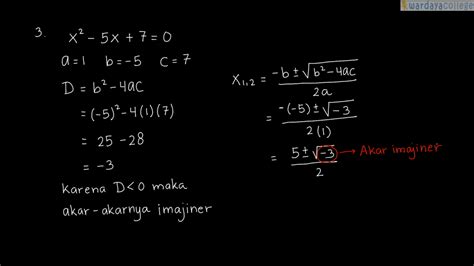 wardayacollege
3. x² - 5x + 7 = 0
a = 1 b = -5 c = 7
D = b² - 4ac
= (-5)² - 4(1)(7)
= 25 - 28
= -3
karena D < 0 maka
akar-akarnya imajiner
x₁,₂ = (-b ± √(b² - 4ac)) / 2a
= (-(-5) ± √(-3)) / 2(1)
= (5 ± √(-3)) / 2 → Akar imajiner